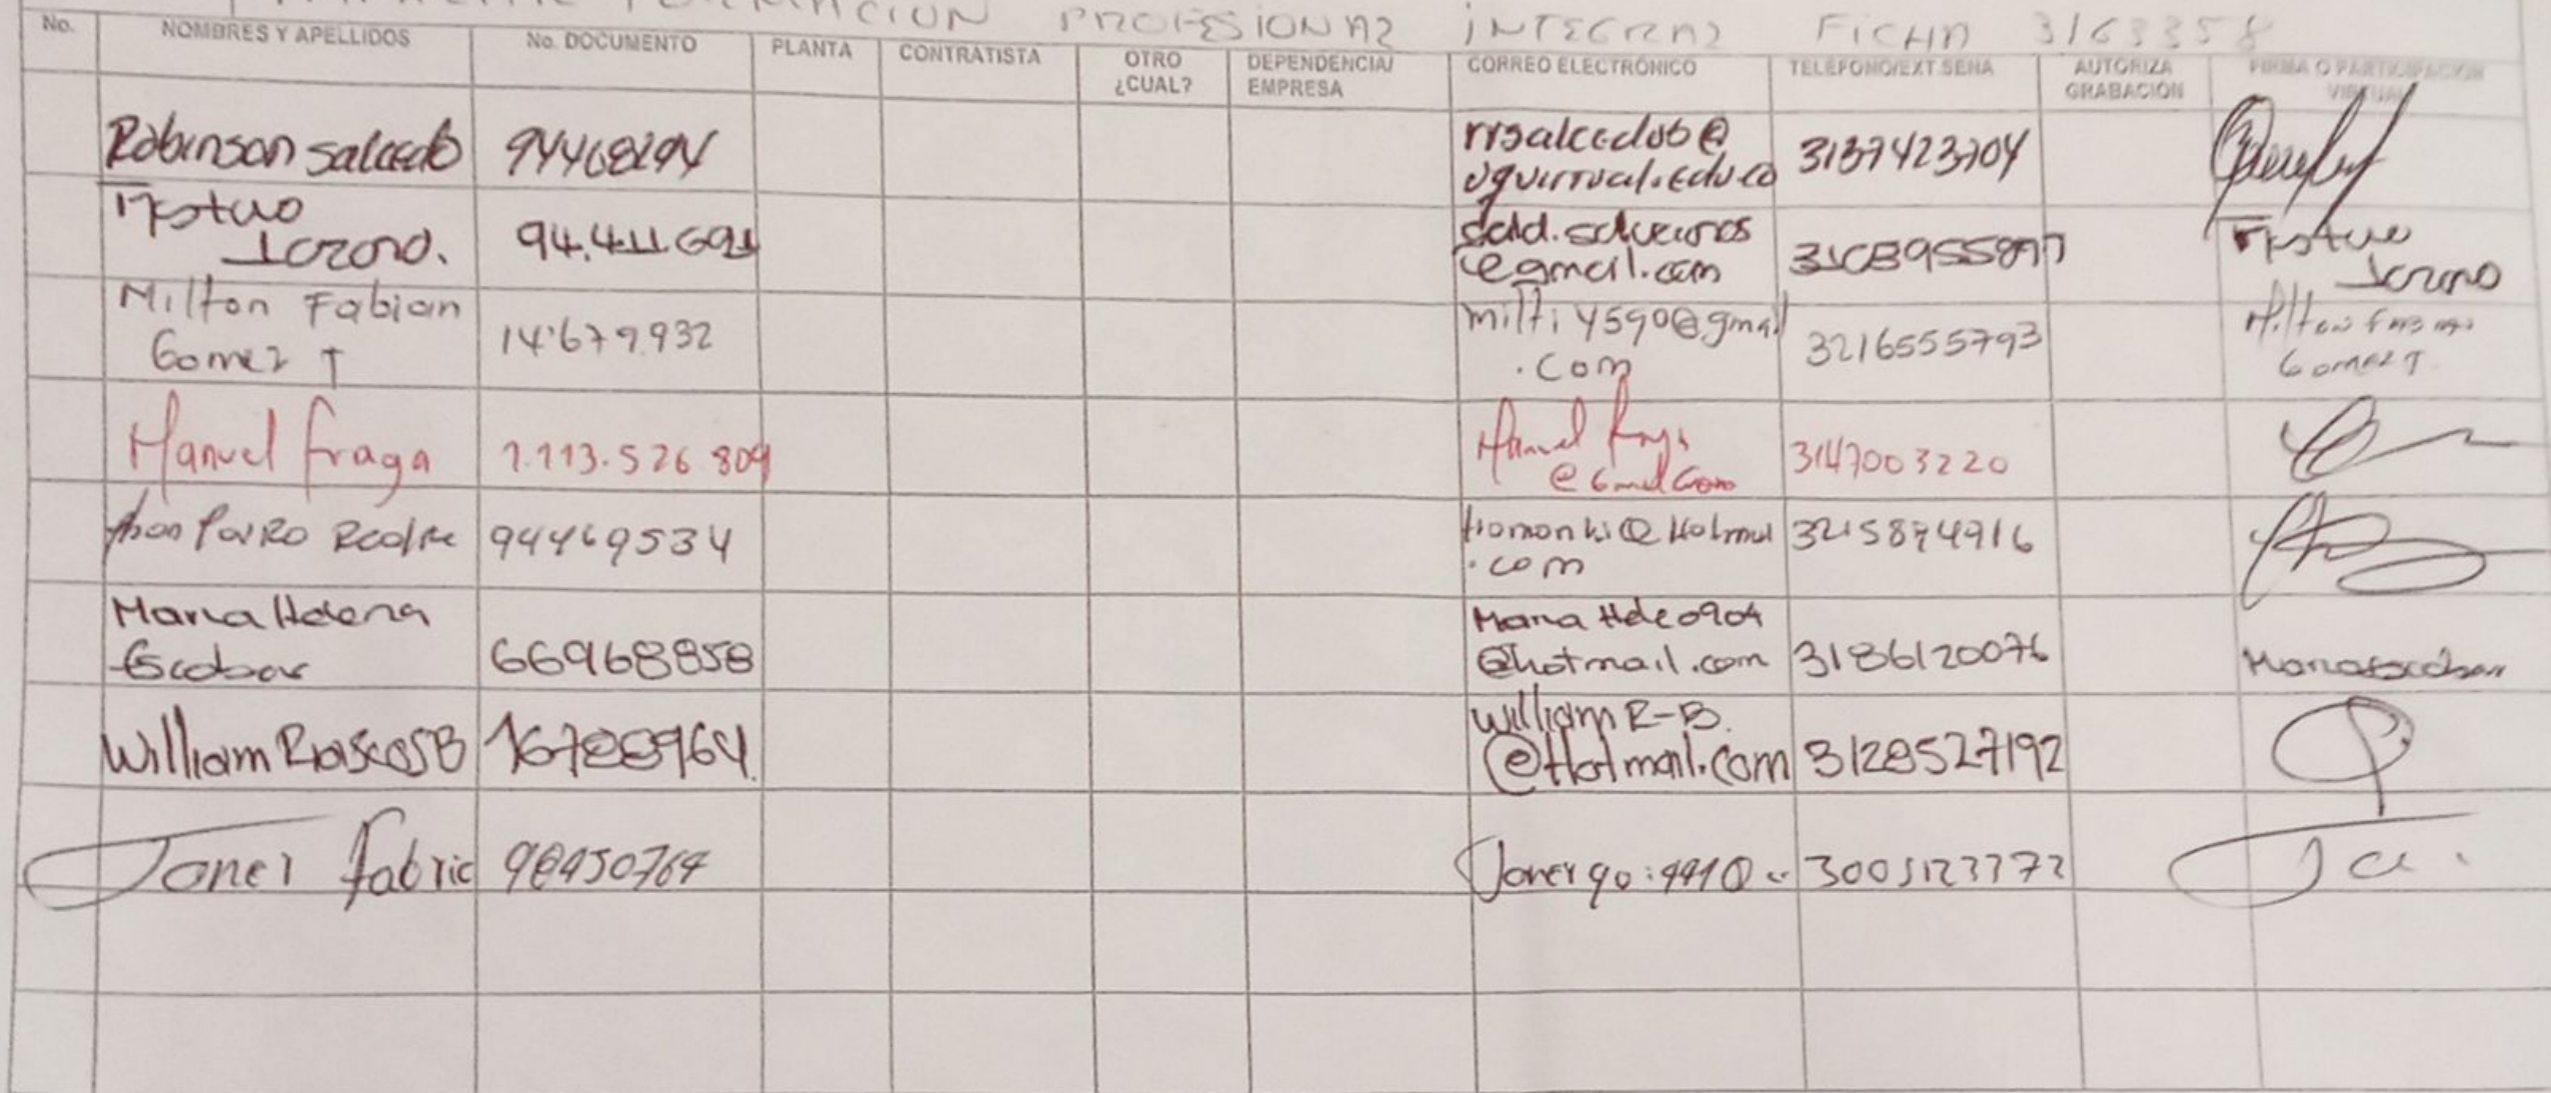 FORMACION PROFESIONAL INTEGRAL FICHA 3163358
No. NOMBRES Y APELLIDOS No. DOCUMENTO PLANTA CONTRATISTA OTRO ¿CUAL? DEPENDENCIA/ EMPRESA CORREO ELECTRÓNICO TELÉFONO/EXT.SENA AUTORIZA GRABACIÓN FIRMA O PARTICIPACIÓN VIRTUAL
Robinson Salcedo 94468294 rrsalcedob@
3137423704
94.411.691
@gmail.com
Milton Fabian
Gomez T 14'679.932 milti4590@gmail
.com 3216555793 Milton Fabian
Gomez T.
Manuel Fraga 1.113.526.809 Manuel Fraga
@Gmail.Com 3147003220
94469534 @Hotmail
.com 3215874916
Maria Helena
Escobar 66968858 Maria Hele0904
@hotmail.com 3186120076 Maria Escobar
William Riascos B 16788964. William R-B.
@Hotmail.com 3128527192
Janer Fabric 98450764